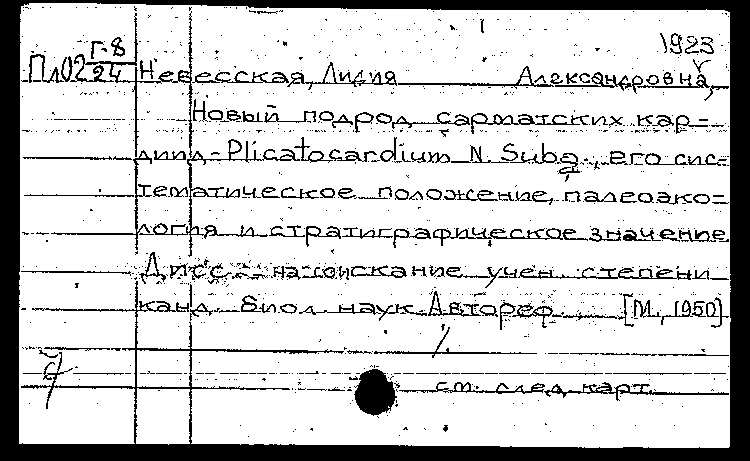 1923
Пл02 Г-8/24 Невесская, Лидия Александровна,
Новый подрод сарматских кар-
диид - Plicatocardium N. Subg., его сис-
тематическое положение, палеоэко-
логия и стратиграфическое значение
Дисс. на соискание учен. степени
канд. биол. наук. Автореф. [М., 1950]
см. след. карт.